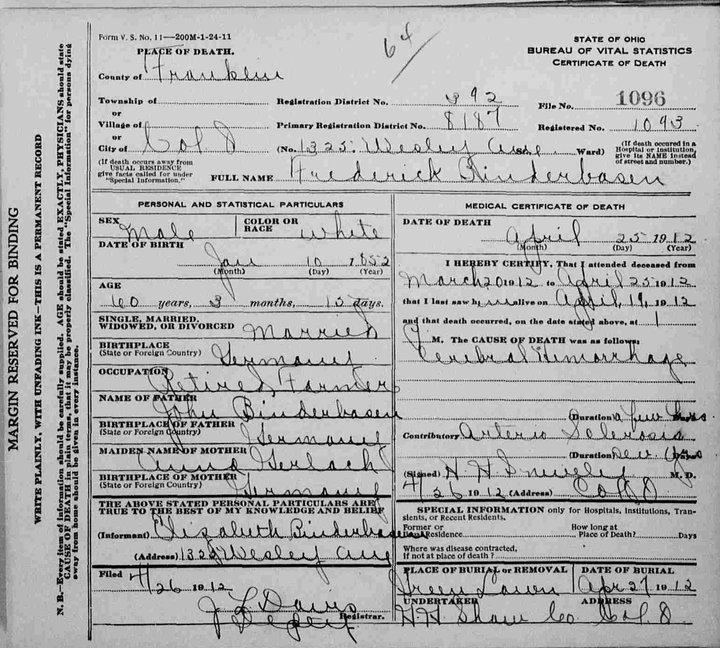 Form V. S. No. 11—200M-1-24-11
64
STATE OF OHIO
BUREAU OF VITAL STATISTICS
CERTIFICATE OF DEATH
PLACE OF DEATH.
County of Franklin
Township of
or
Village of
or
City of Col O
Registration District No. 392 File No. 1096
Primary Registration District No. 8187 Registered No. 1093
(No. 1325 Wesley Ave St.; Ward)
(If death occurred in a Hospital or institution, give its NAME instead of street and number.)
(If death occurs away from USUAL RESIDENCE give facts called for under "Special Information.")
FULL NAME Frederick Binderbasen
PERSONAL AND STATISTICAL PARTICULARS
SEX Male COLOR OR RACE White
DATE OF BIRTH Jan 10 1852
(Month) (Day) (Year)
AGE 60 years, 3 months, 15 days.
SINGLE, MARRIED, WIDOWED, OR DIVORCED Married
BIRTHPLACE
(State or Foreign Country) Germany
OCCUPATION Retired Farmer
NAME OF FATHER John Binderbasen
BIRTHPLACE OF FATHER
(State or Foreign Country) Germany
MAIDEN NAME OF MOTHER Anna Gerlach
BIRTHPLACE OF MOTHER
(State or Foreign Country) Germany
THE ABOVE STATED PERSONAL PARTICULARS ARE
TRUE TO THE BEST OF MY KNOWLEDGE AND BELIEF
(Informant) Elizabeth Binderbasen
(Address) 1325 Wesley Ave
Filed 4/26 1912
J L Davis
Deputy Registrar.
MEDICAL CERTIFICATE OF DEATH
DATE OF DEATH
April 25 1912
(Month) (Day) (Year)
I HEREBY CERTIFY, That I attended deceased from
March 20 1912 to April 25 1912
that I last saw him alive on April 19, 1912
and that death occurred, on the date stated above, at 1
M. The CAUSE OF DEATH was as follows:
Cerebral Hemorrhage
(Duration) a few
Contributory Arterio Sclerosis
(Duration)
(Signed) H H M. D.
4/26 1912 (Address) Col O
SPECIAL INFORMATION only for Hospitals, Institutions, Transients, or Recent Residents.
Former or Usual Residence How long at Place of Death? Days
Where was disease contracted, if not at place of death?
PLACE OF BURIAL or REMOVAL Green Lawn
DATE OF BURIAL Apr 27 1912
UNDERTAKER H H Shaw Co
ADDRESS Col. O
MARGIN RESERVED FOR BINDING
WRITE PLAINLY, WITH UNFADING INK—THIS IS A PERMANENT RECORD
N. B.—Every item of information should be carefully supplied. AGE should be stated EXACTLY, PHYSICIANS should state
CAUSE OF DEATH in plain terms, that it may be properly classified. The "Special Information" for persons dying
away from home should be given in every instance.